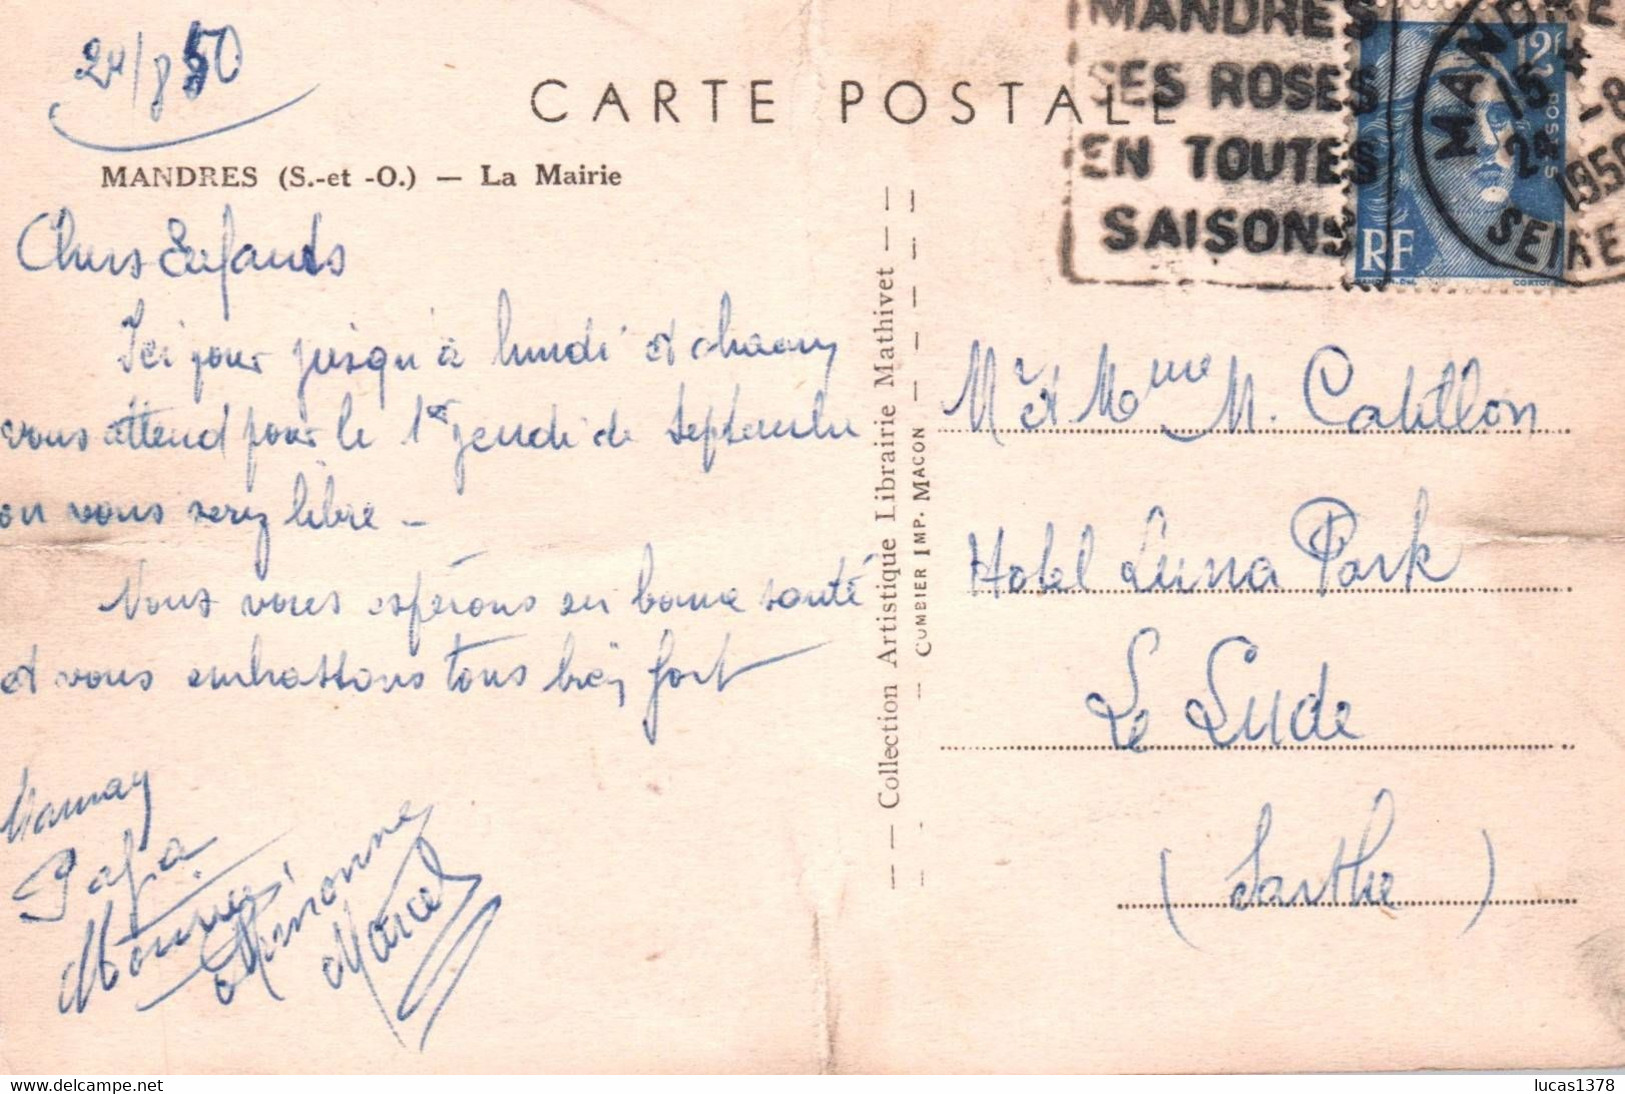 24/8 50
CARTE POSTALE
MANDRES (S.-et -O.) — La Mairie
MANDRES
SES ROSES
EN TOUTES
SAISONS
12F
POSTES
RF
CORTOT
MANDRES
15
24 -8
1950
SEINE
Chers Enfants
Ici pour jusqu'à lundi et chacun
vous attend pour le 1er jeudi de Septembre
on vous serez libre —
Nous vous espérons en bonne santé
et vous embrassons tous bien fort
Maman
Papa
Simonne
Marcel
— — Collection Artistique Librairie Mathivet — —
CUMBIER IMP. MACON
Mr et Mme M.
Hotel Luna Park
Le Lude
(Sarthe)
www.delcampe.net
lucas1378